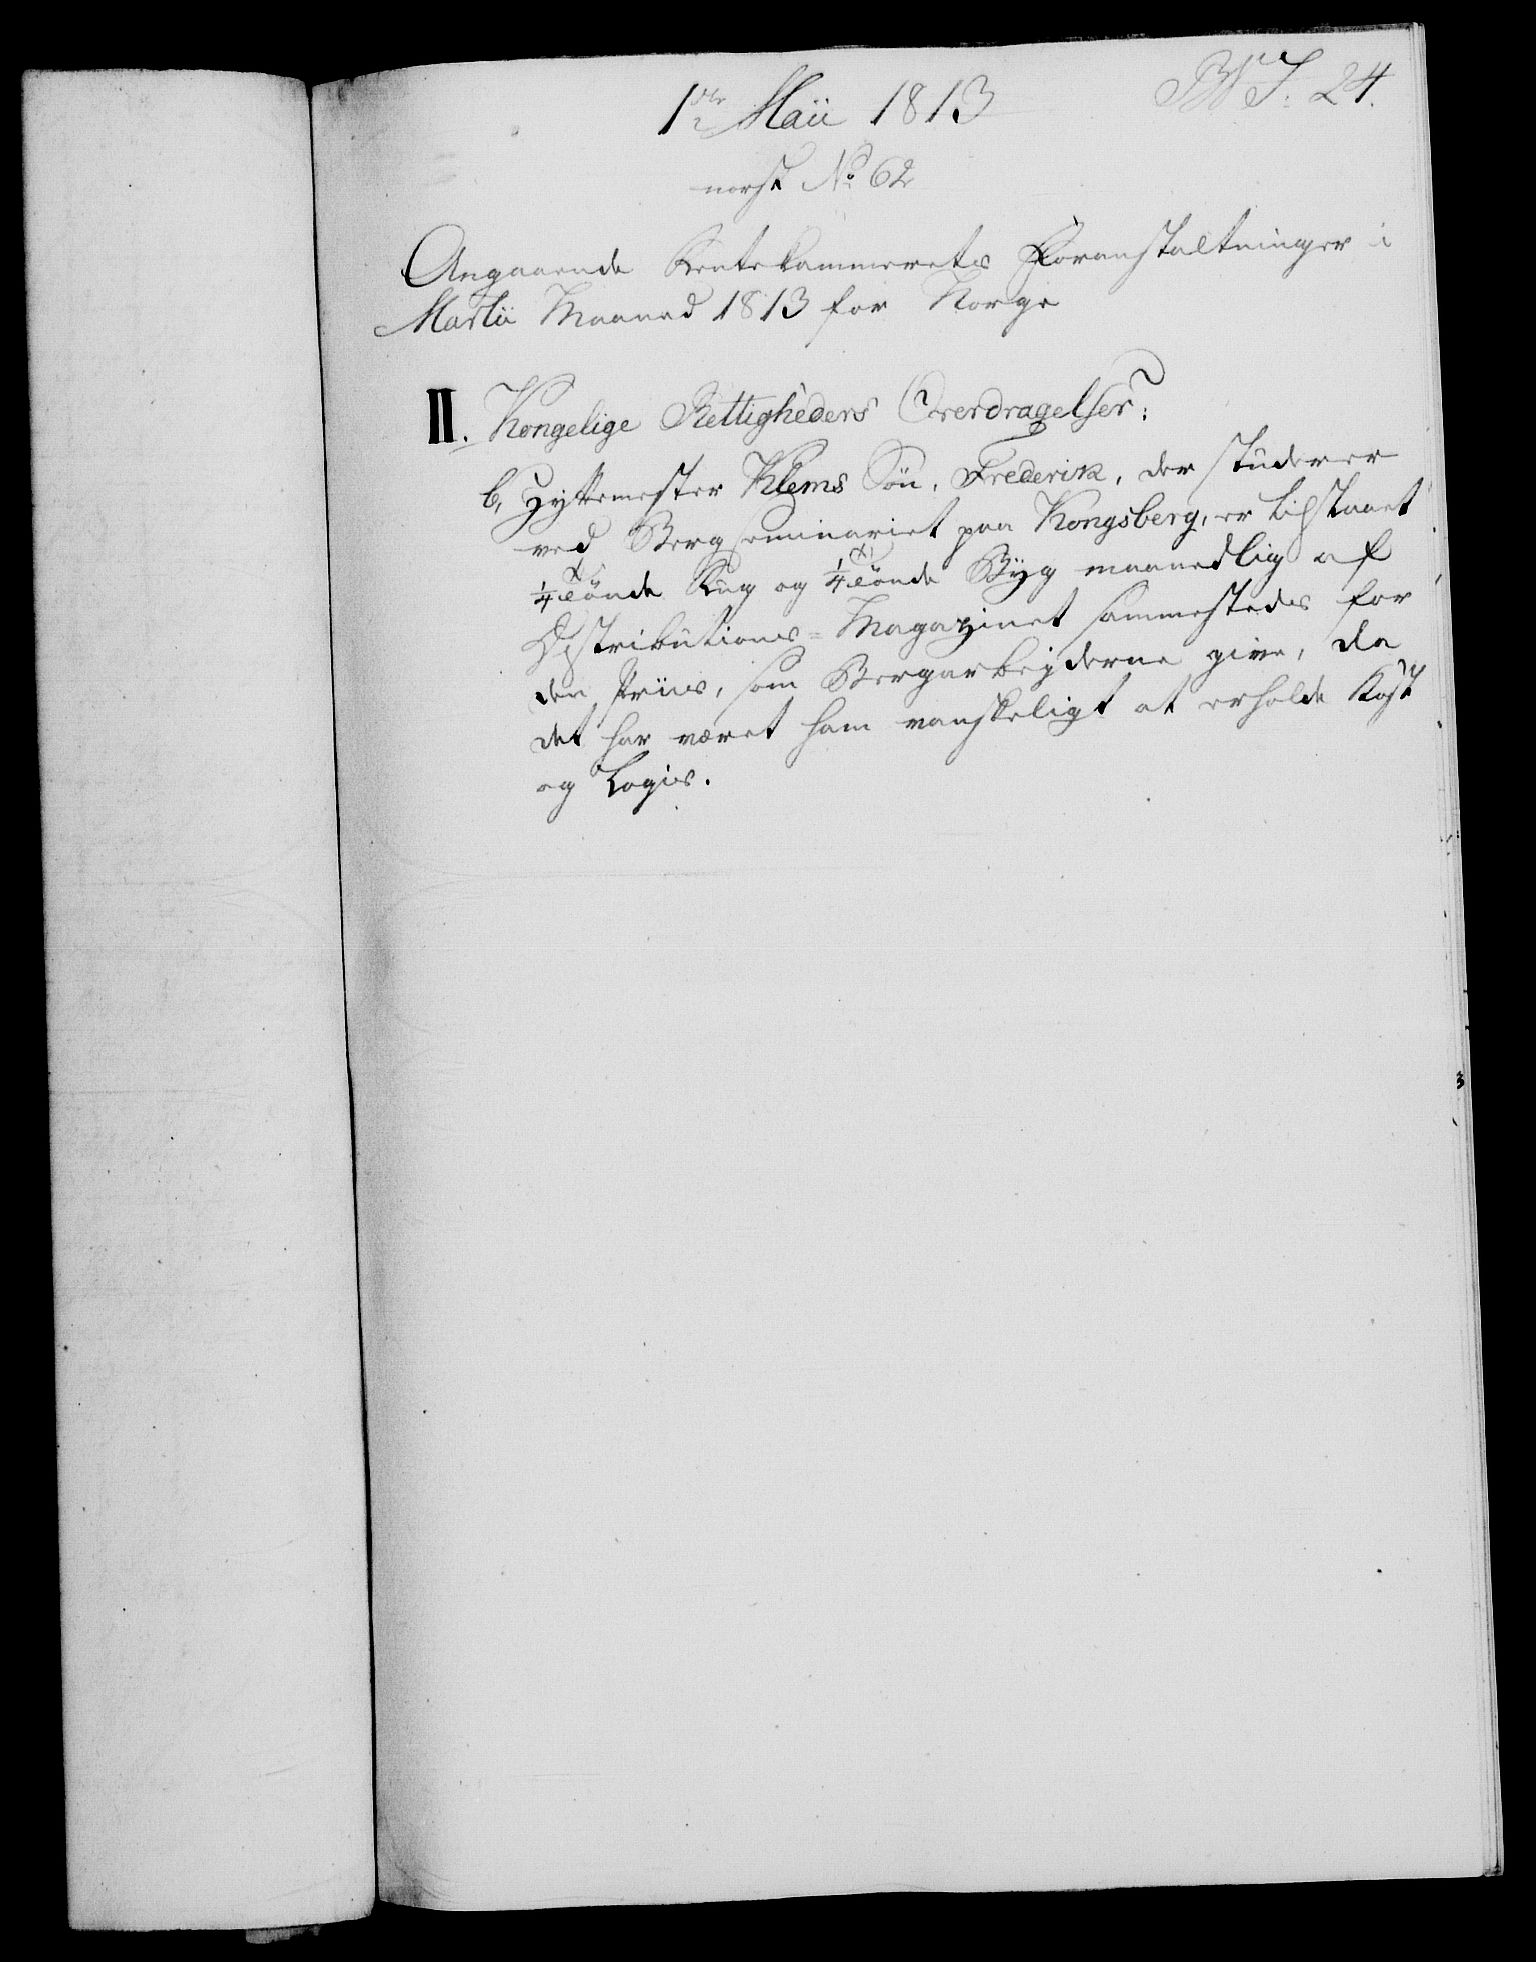 1ste Maii 1813
24.
norsk No 62
Angaaende Rentekammerets Foranstaltninger i
Martii Maaned 1813 for Norge
II. Kongelige Rettigheders Overdragelser:
b, Hyttemester Klems Søn, Frederik, der studerer
ved Bergseminariet paa Kongsberg, er tilstaaet
1/4 Tönde Rug og 1/4 Tönde Byg maanedlig af
Distributions-Magazinet sammesteds for
den Priis, som Bergarbejderne give, da
det har været ham vanskeligt at erholde Kost
og Logis.